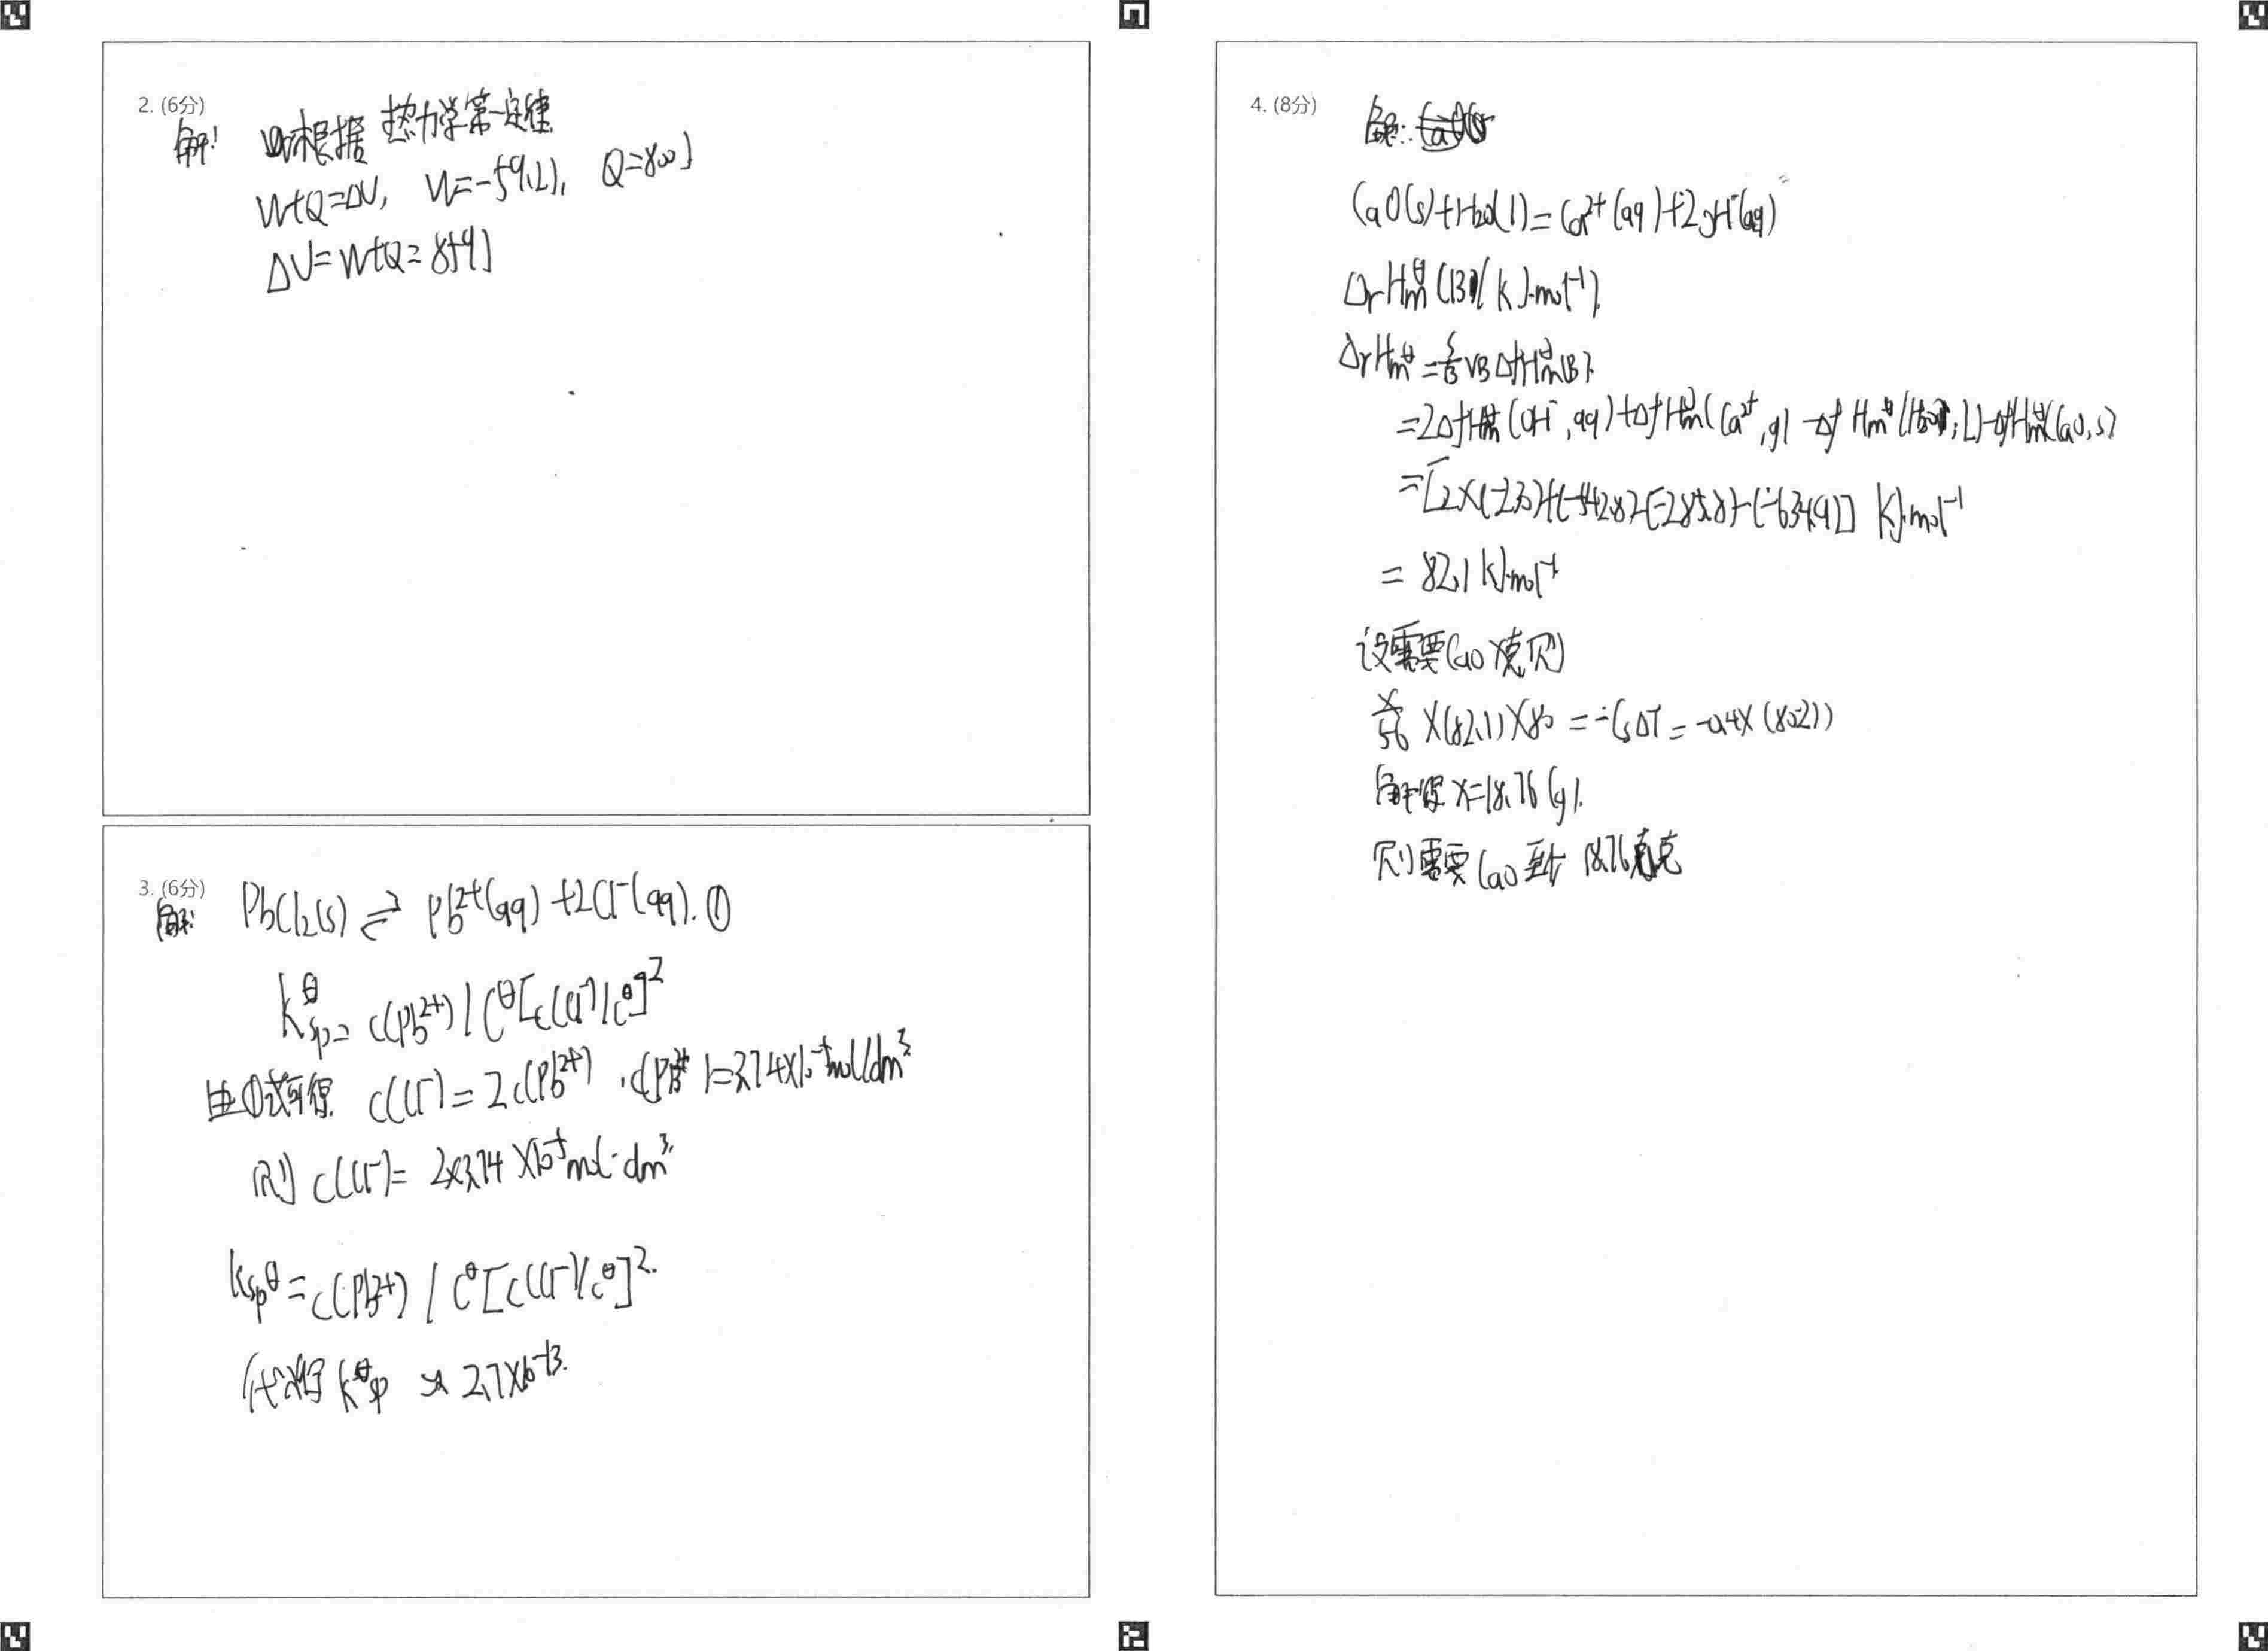 2. (6分)
解: 根据 热力学第一定律
W+Q=ΔU, W=-59.2J, Q=800J
ΔU=W+Q=859J
3. (6分)
解: PbCl₂(s) ⇌ Pb²⁺(aq) +2Cl⁻(aq). ①
K^θ_sp = c(Pb²⁺) / C^θ [c(Cl⁻)/c^θ]²
由①式可得 c(Cl⁻) = 2c(Pb²⁺) , =3.74×10⁻⁵mol/dm³
则 c(Cl⁻)= 2×3.74 ×10⁻⁵mol·dm³
Ksp^θ = c(Pb²⁺) / C^θ [c(Cl⁻)/c^θ]².
代入得 K^θsp ≈ 2.7×10⁻¹³.
4. (8分)
解:
CaO(s)+H₂O(l) = Ca²⁺(aq)+2OH⁻(aq)
ΔrHm^θ kJ·mol⁻¹).
ΔrHm^θ = Σ_B νB ΔfHm^θ(B).
=2ΔfHm^θ(OH⁻,aq)+ΔfHm^θ(Ca²⁺,g) -Δf Hm^θ(H₂O,L)-ΔfHm^θ(CaO,s)
=[2×(-230)+(-542.8)-(-285.8)-(-634.9)] kJ·mol⁻¹
= 82.1 kJ·mol⁻¹
设需要CaO x克 则
x/56 ×(82.1)×80 = -CsΔT = -0.4×(80-21)
解得 x=18.76(g).
则需要CaO 至少 18.76克